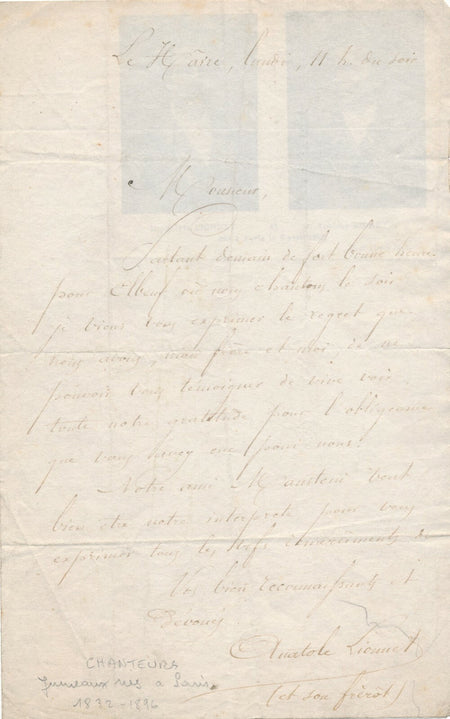 Le Hâvre, lundi, 11 h. du soir
Monsieur,
Partant demain de fort bonne heure
pour Elbeuf où nous chantons le soir
je viens vous exprimer le regret que
nous avons, mon frère et moi, de ne
pouvoir vous témoigner de vive voix
toute notre gratitude pour l'obligeance
que vous avez eue pour nous.
Notre ami M veut
bien être notre interprète pour vous
exprimer tous les vifs de
Vos bien reconnaissants et
Dévoués
Anatole Lionnet
(et son frérot)
CHANTEURS
Jumeaux nés à Paris
1832-1896